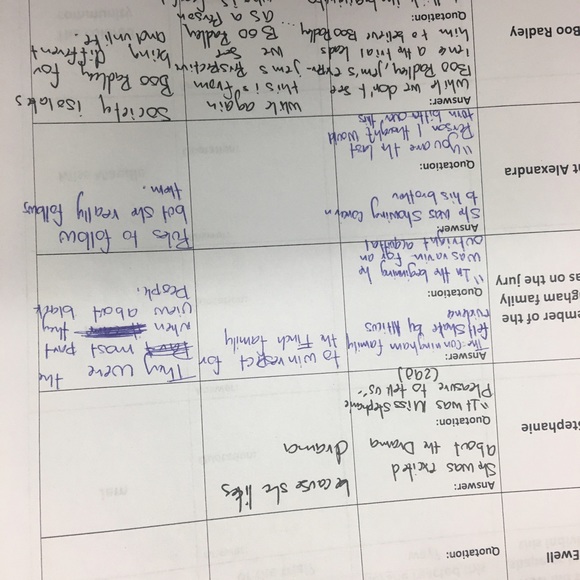 Ewell
Quotation:
tephanie
Answer:
She was excited
About the Drama
Quotation:
"It was Miss Stephanie
Pleasure to tell us".
(290)
because she likes
drama
ember of the
gham family
as on the jury
Answer:
The Cunningham family
felt shate by Atticus
evidence
Quotation:
"In the beginning he
was ravin for an
outright aquittal
to win respect for
the Finch family
They were the
most part
when they
views about black
People.
t Alexandra
Answer:
She was showing concern
to his brother
Quotation:
"you are the last
Person I thought would
turn bitter over this
Rules to follow
but she really follows
them.
Boo Radley
Answer:
While we don't see
Boo Radley, Jem's expe-
ience at the trial leads
him to believe Boo Radley
Quotation:
while again
this is from
Jem's Perspective
we see
Boo Radley
as a Person
Society isolates
Boo Radley for
being different
and unlike.